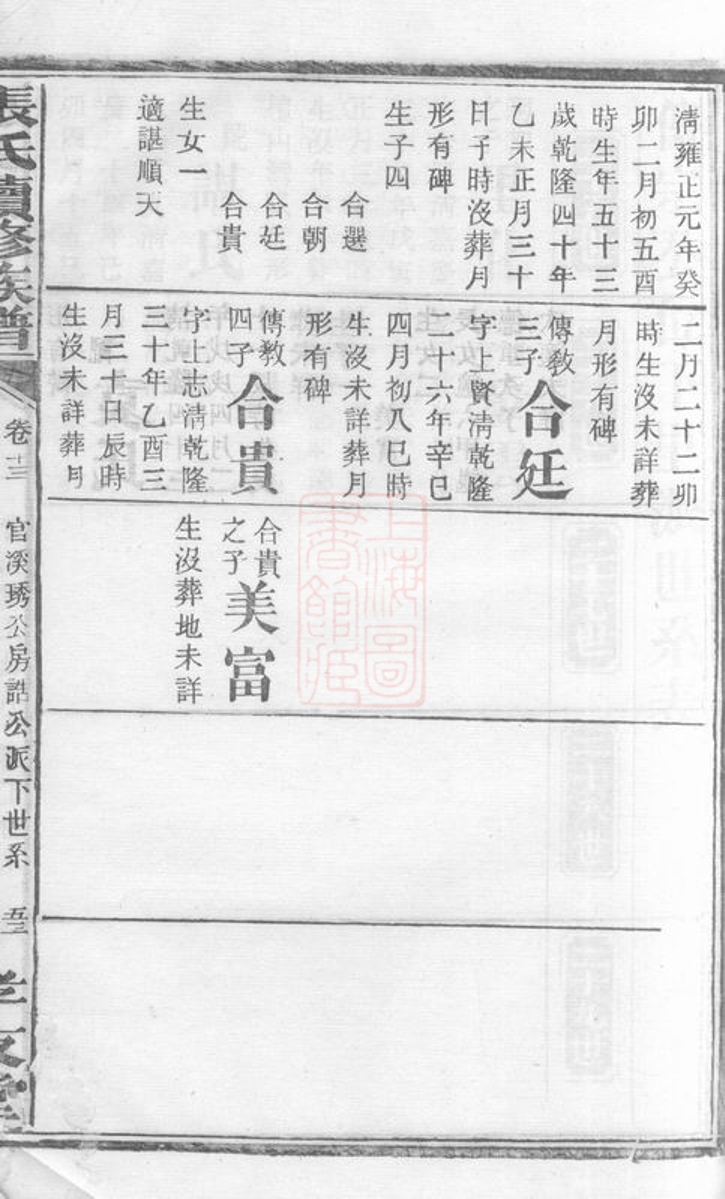 清雍正元年癸
卯二月初五酉
時生年五十三
歲乾隆四十年
乙未正月三十
日子時沒葬月
形有碑
生子四
合選
合朝
合廷
合貴
生女一
適諶順天
二月二十二卯
時生沒未詳葬
月形有碑
傳教
三子
合廷
字上賢清乾隆
二十六年辛巳
四月初八巳時
生沒未詳葬月
形有碑
傳教
四子
合貴
字上志清乾隆
三十年乙酉三
月三十日辰時
生沒未詳葬月
合貴
之子
美富
生沒葬地未詳
張氏續修族譜
卷十三
官溪琇公房誥公派下世系
五三
孝友堂
上海圖
書館藏